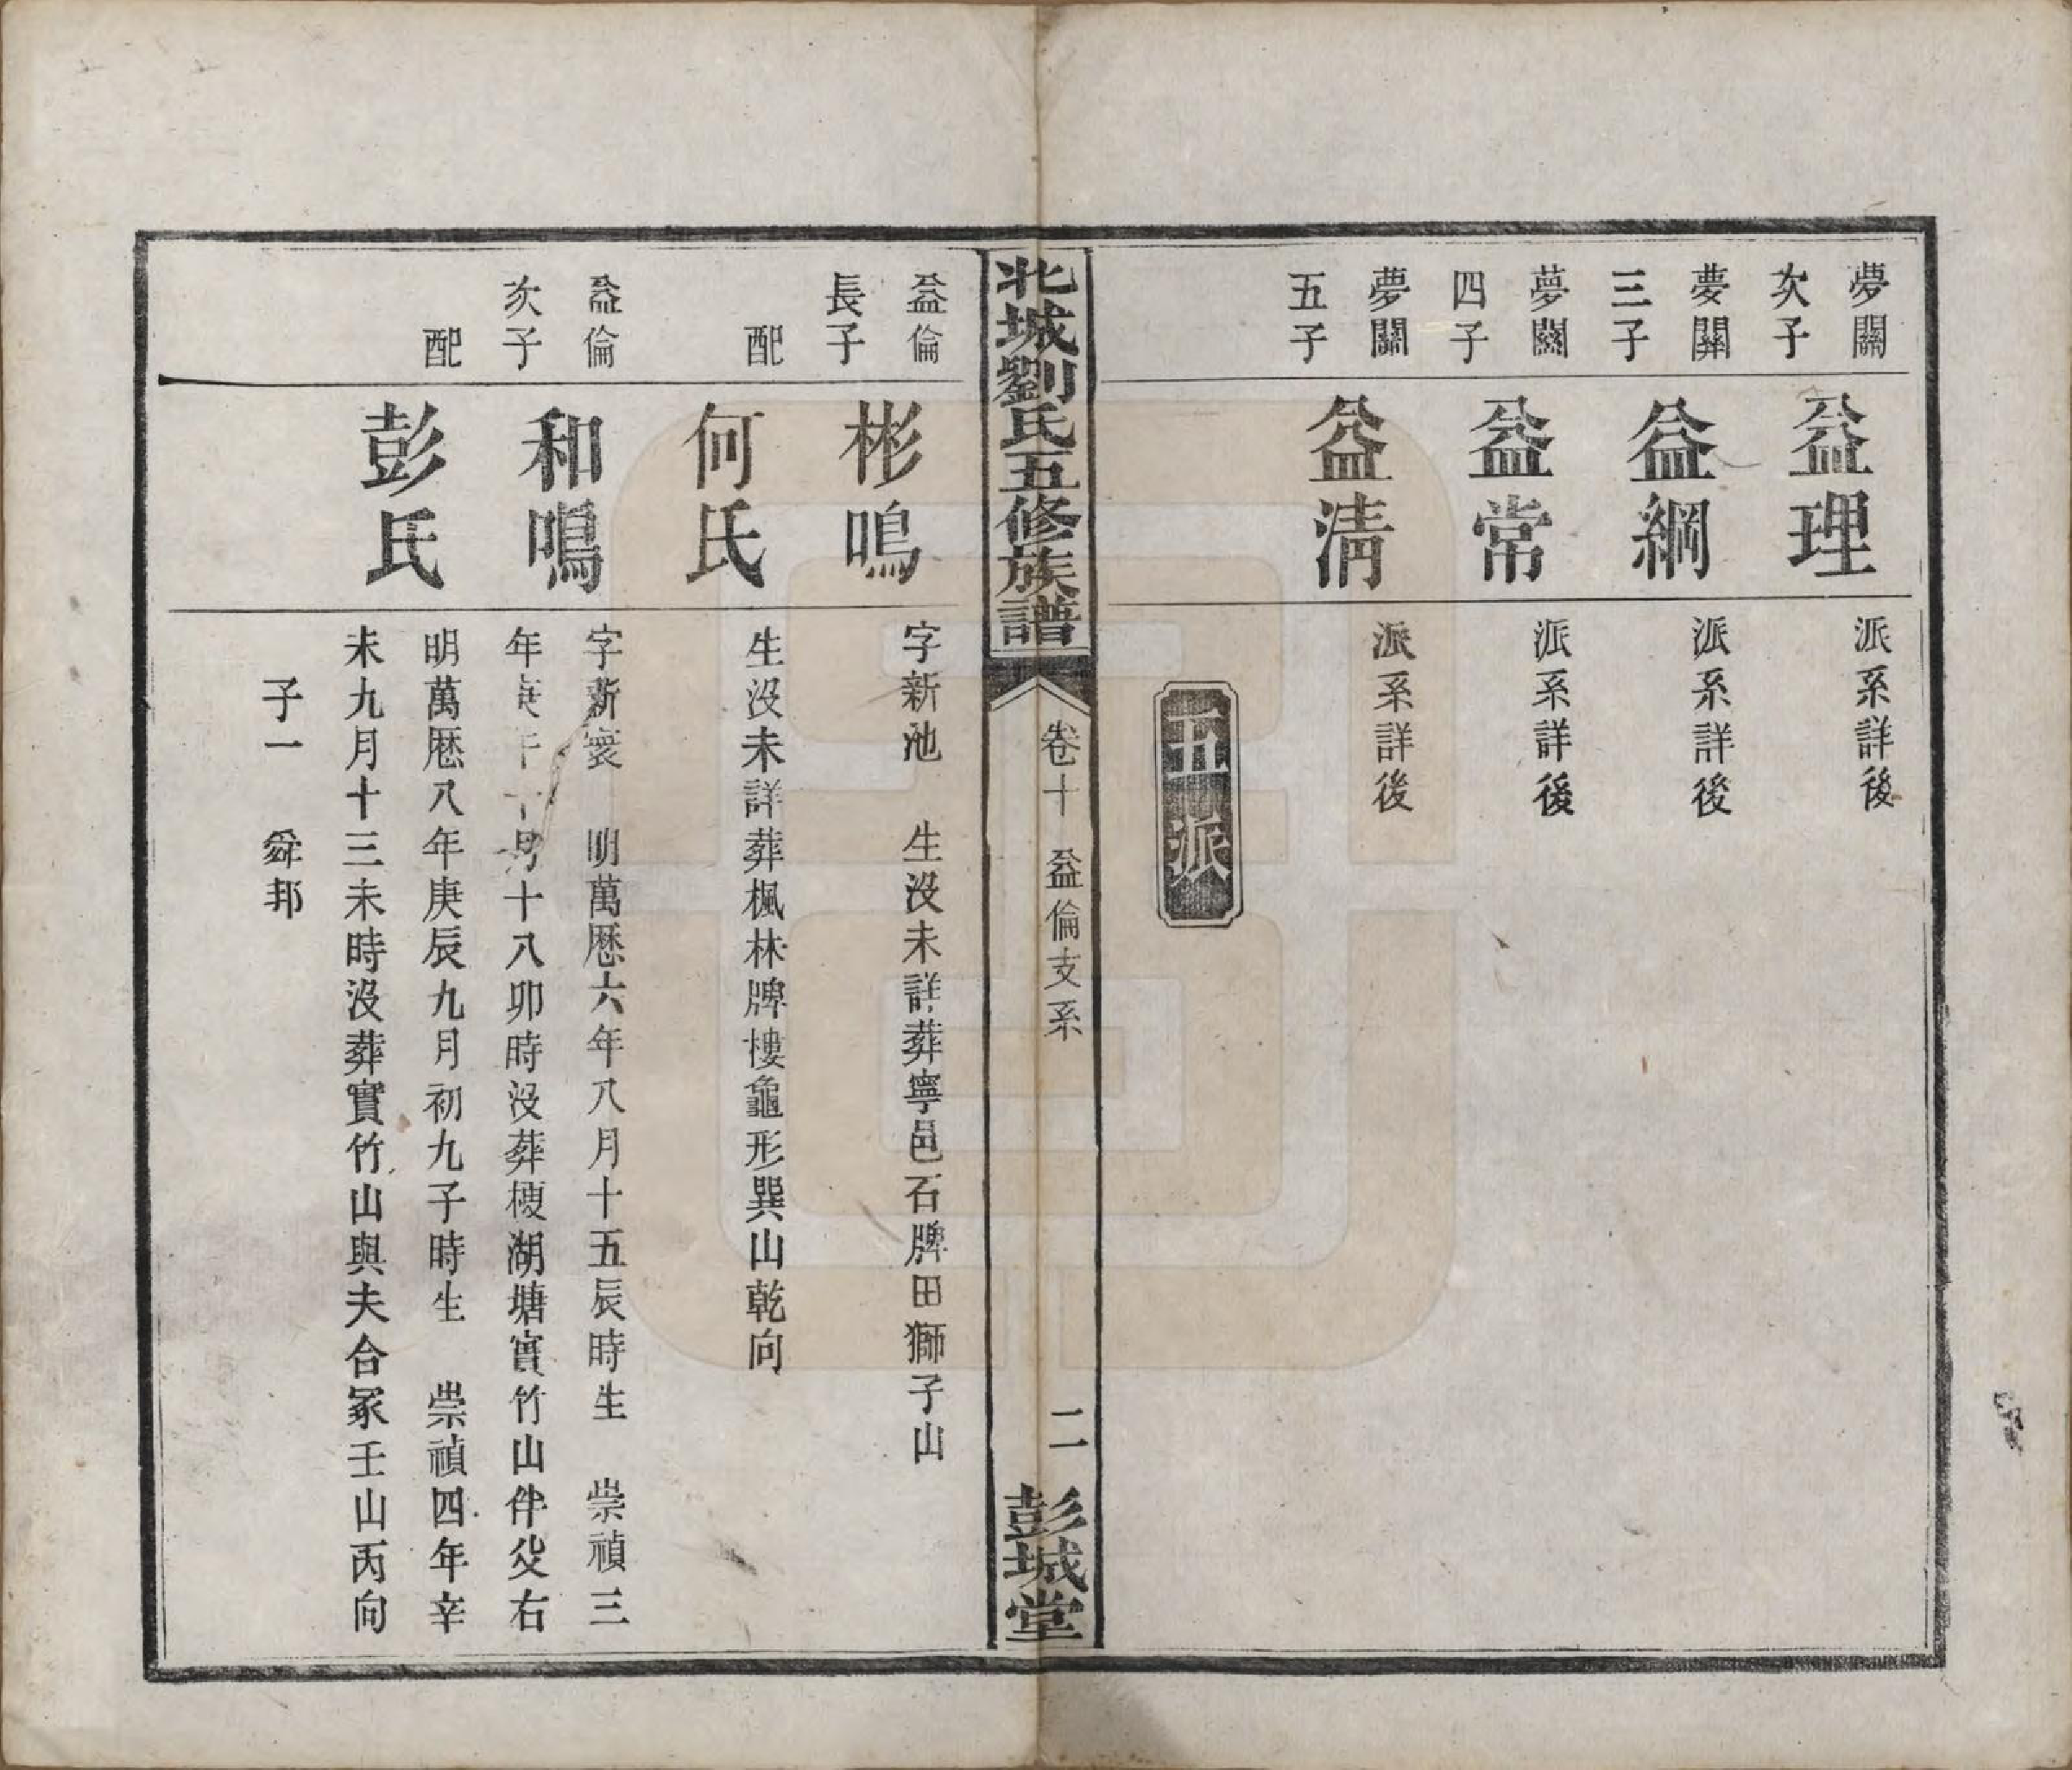 夢關
次子
益理
派系詳後
夢關
三子
益綱
派系詳後
夢關
四子
益常
派系詳後
夢關
五子
益清
派系詳後
五派
北城劉氏五修族譜
卷十
益倫支系
二
彭城堂
益倫
長子
彬鳴
字新池 生沒未詳葬寧邑石牌田獅子山
配
何氏
生沒未詳葬楓林牌樓龜形巽山乾向
益倫
次子
和鳴
字新寰 明萬厯六年八月十五辰時生 崇禎三
年庚午十月十八卯時沒葬梗湖塘實竹山伴父右
配
彭氏
明萬厯八年庚辰九月初九子時生 崇禎四年辛
未九月十三未時沒葬實竹山與夫合冢壬山丙向
子一 舜邦